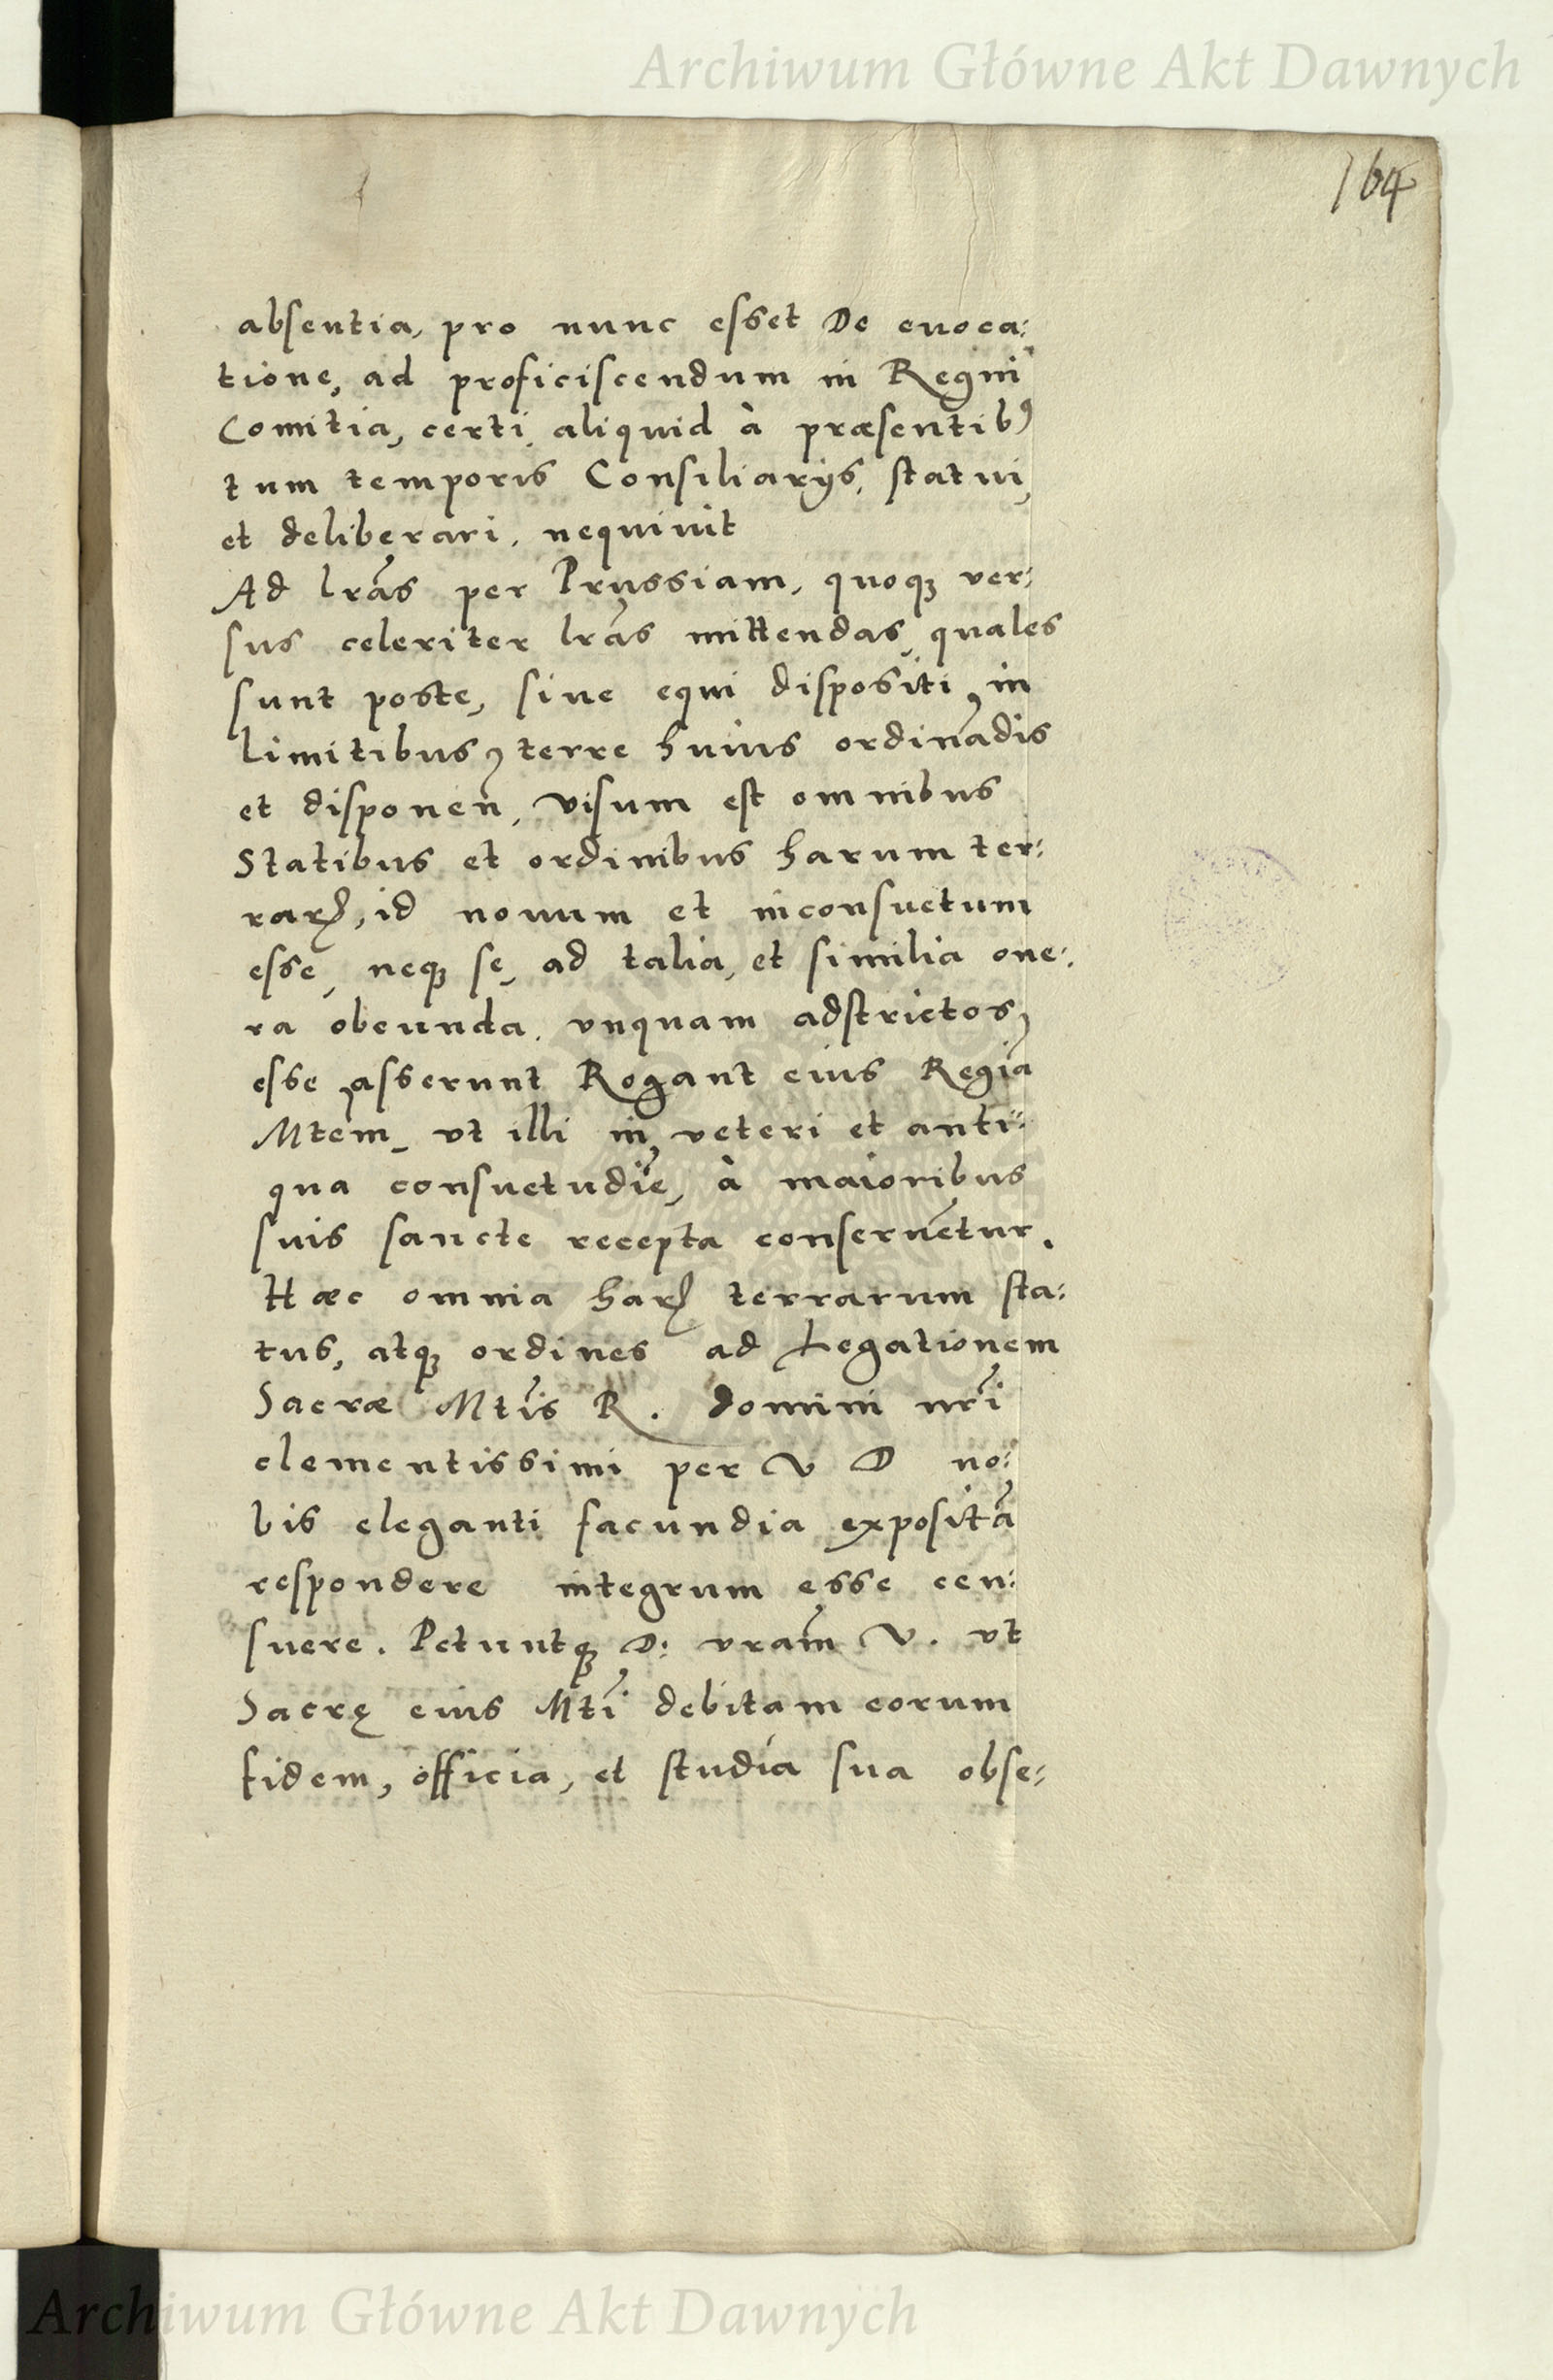 Archiwum Główne Akt Dawnych
164
absentia, pro nunc esset De euoca:
tione, ad proficiscendum in Regni
Comitia, certi aliquid à præsentib9
tum temporis Consiliarijs, statui,
et deliberari, nequiuit
Ad lrãs per Prussiam, quoqꝫ ver:
sus celeriter lrãs mittendas, quales
sunt poste, siue equi dispositi, in
limitibus, terre huius ordinãdis
et disponen̄, visum est omnibus
Statibus et ordinibus harum ter:
rarꝝ, id nouum et inconsuetum
esse, neqꝫ se, ad talia, et similia one:
ra obeunda, vnquam adstrictos,
esse, asserunt Rogant eius Regiã
Mtem, vt illi in, veteri et anti:
qua consuetudĩe, à maioribus
suis sancte recepta conseruẽtur.
Hæc omnia harꝝ terrarum sta:
tus, atqꝫ ordines ad Legationem
Sacræ Mtĩs R. domini nrĩ
clementissimi per V D no:
bis eleganti facundia expositã
respondere integrum esse cen:
suere. Petuntqꝫ D: vrãm V. vt
Sacrę eius Mtĩ debitam eorum
fidem, officia, et studia sua obse:
Archiwum Główne Akt Dawnych